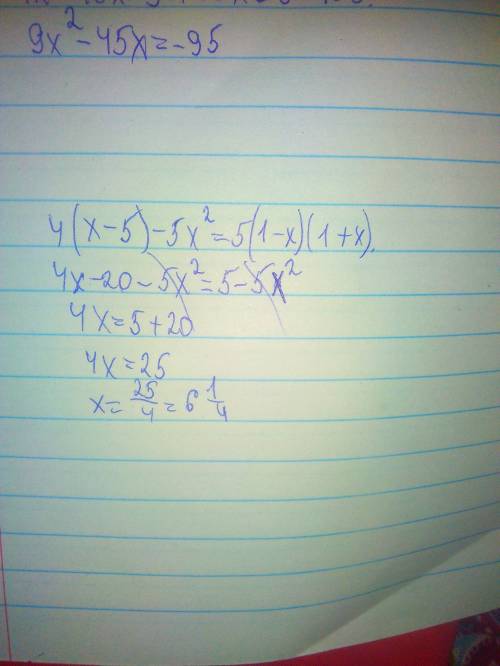 9x² - 45x = -95
4(x-5) - 5x² = 5(1-x)(1+x).
4x - 20 - 5x² = 5 - 5x²
4x = 5 + 20
4x = 25
x = 25/4 = 6 1/4